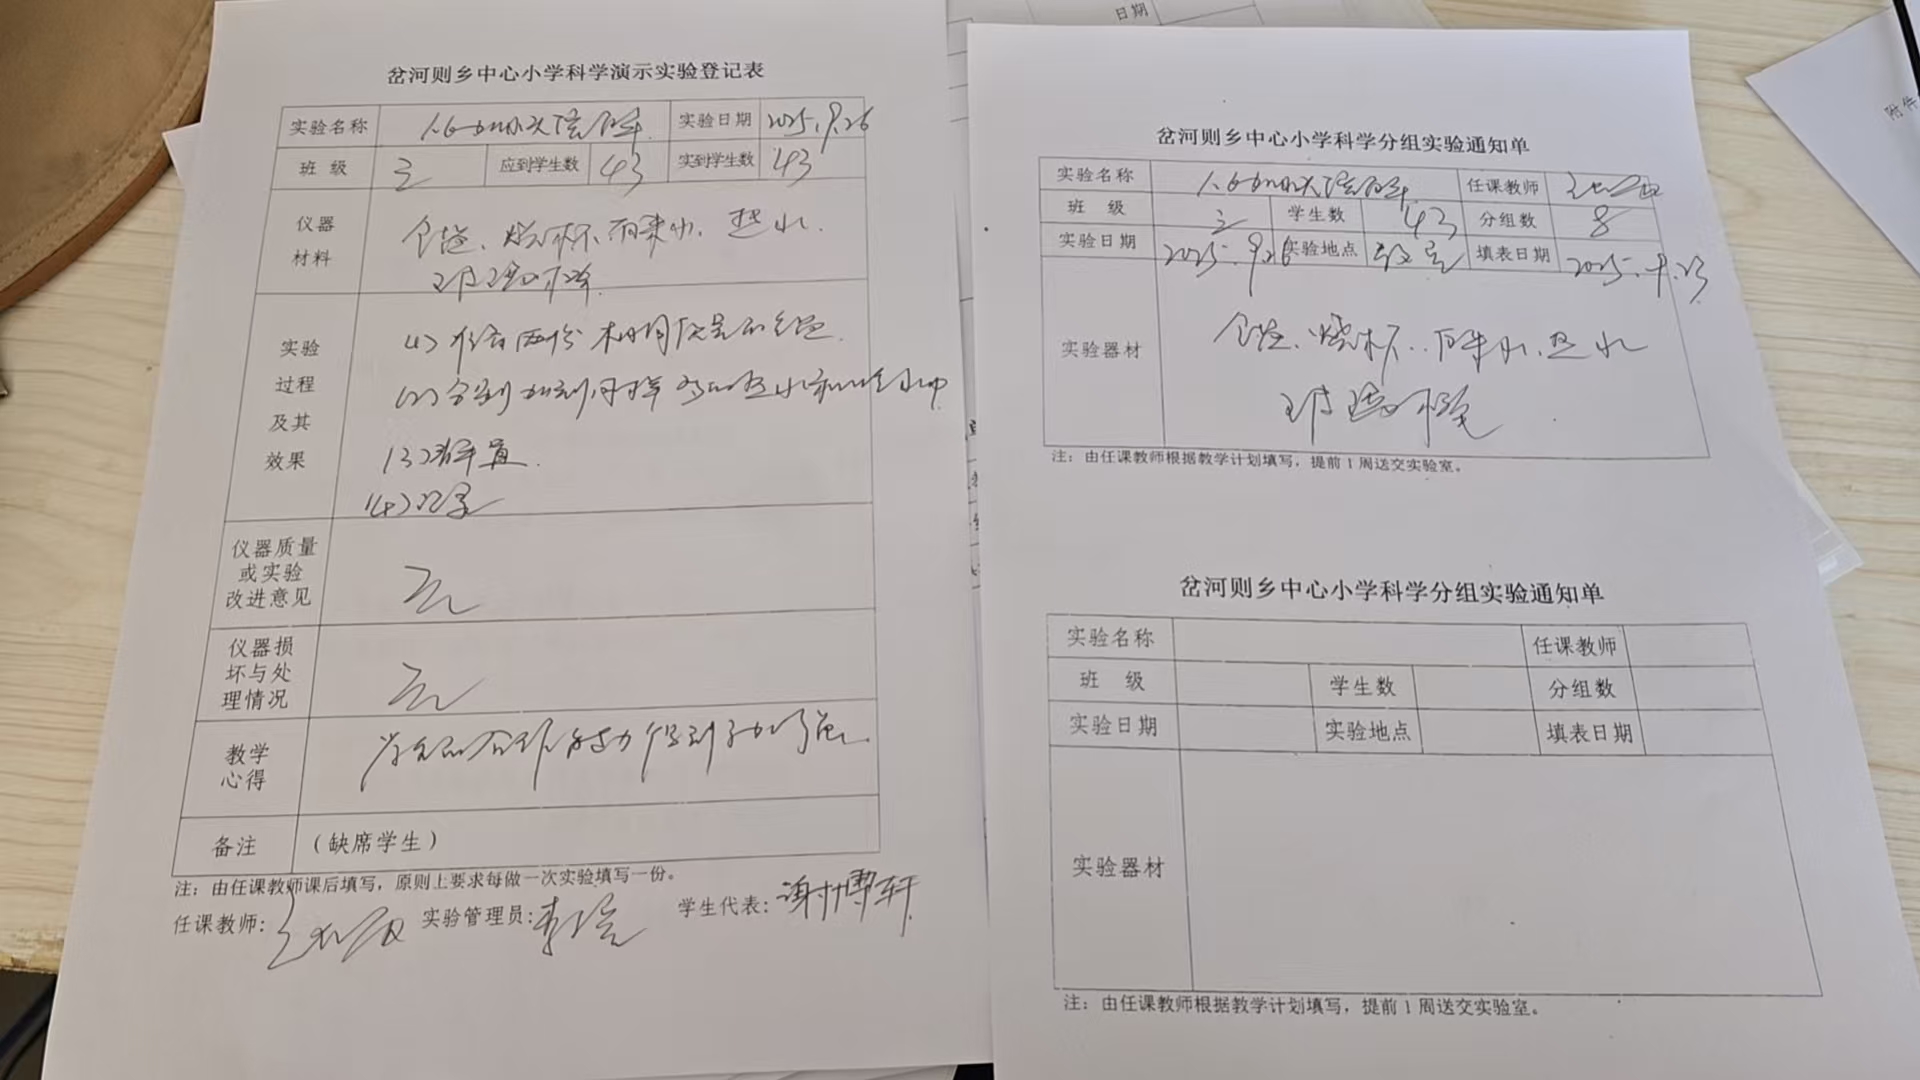 日期
附件
岔河则乡中心小学科学演示实验登记表
实验名称 实验日期 2025.9.26
班级 三 应到学生数 43 实到学生数 43
仪器材料 食盐、烧杯、自来水、热水、
玻璃棒
实验过程及其效果
(1) 准备两份相同质量的食盐
(2) 分别加到同样多的热水和冷水中
(3)
(4) 记录
仪器质量或实验改进意见 无
仪器损坏与处理情况 无
教学心得 学生的合作能力得到了加强
备注 (缺席学生)
注:由任课教师课后填写,原则上要求每做一次实验填写一份。
任课教师: 实验管理员: 学生代表:谢博轩
岔河则乡中心小学科学分组实验通知单
实验名称 任课教师
班级 三 学生数 43 分组数 8
实验日期 2025.9.26 实验地点 教室 填表日期 2025.9.23
实验器材 食盐、烧杯、自来水、热水
玻璃棒
注:由任课教师根据教学计划填写,提前1周送交实验室。
岔河则乡中心小学科学分组实验通知单
实验名称 任课教师
班级 学生数 分组数
实验日期 实验地点 填表日期
实验器材
注:由任课教师根据教学计划填写,提前1周送交实验室。